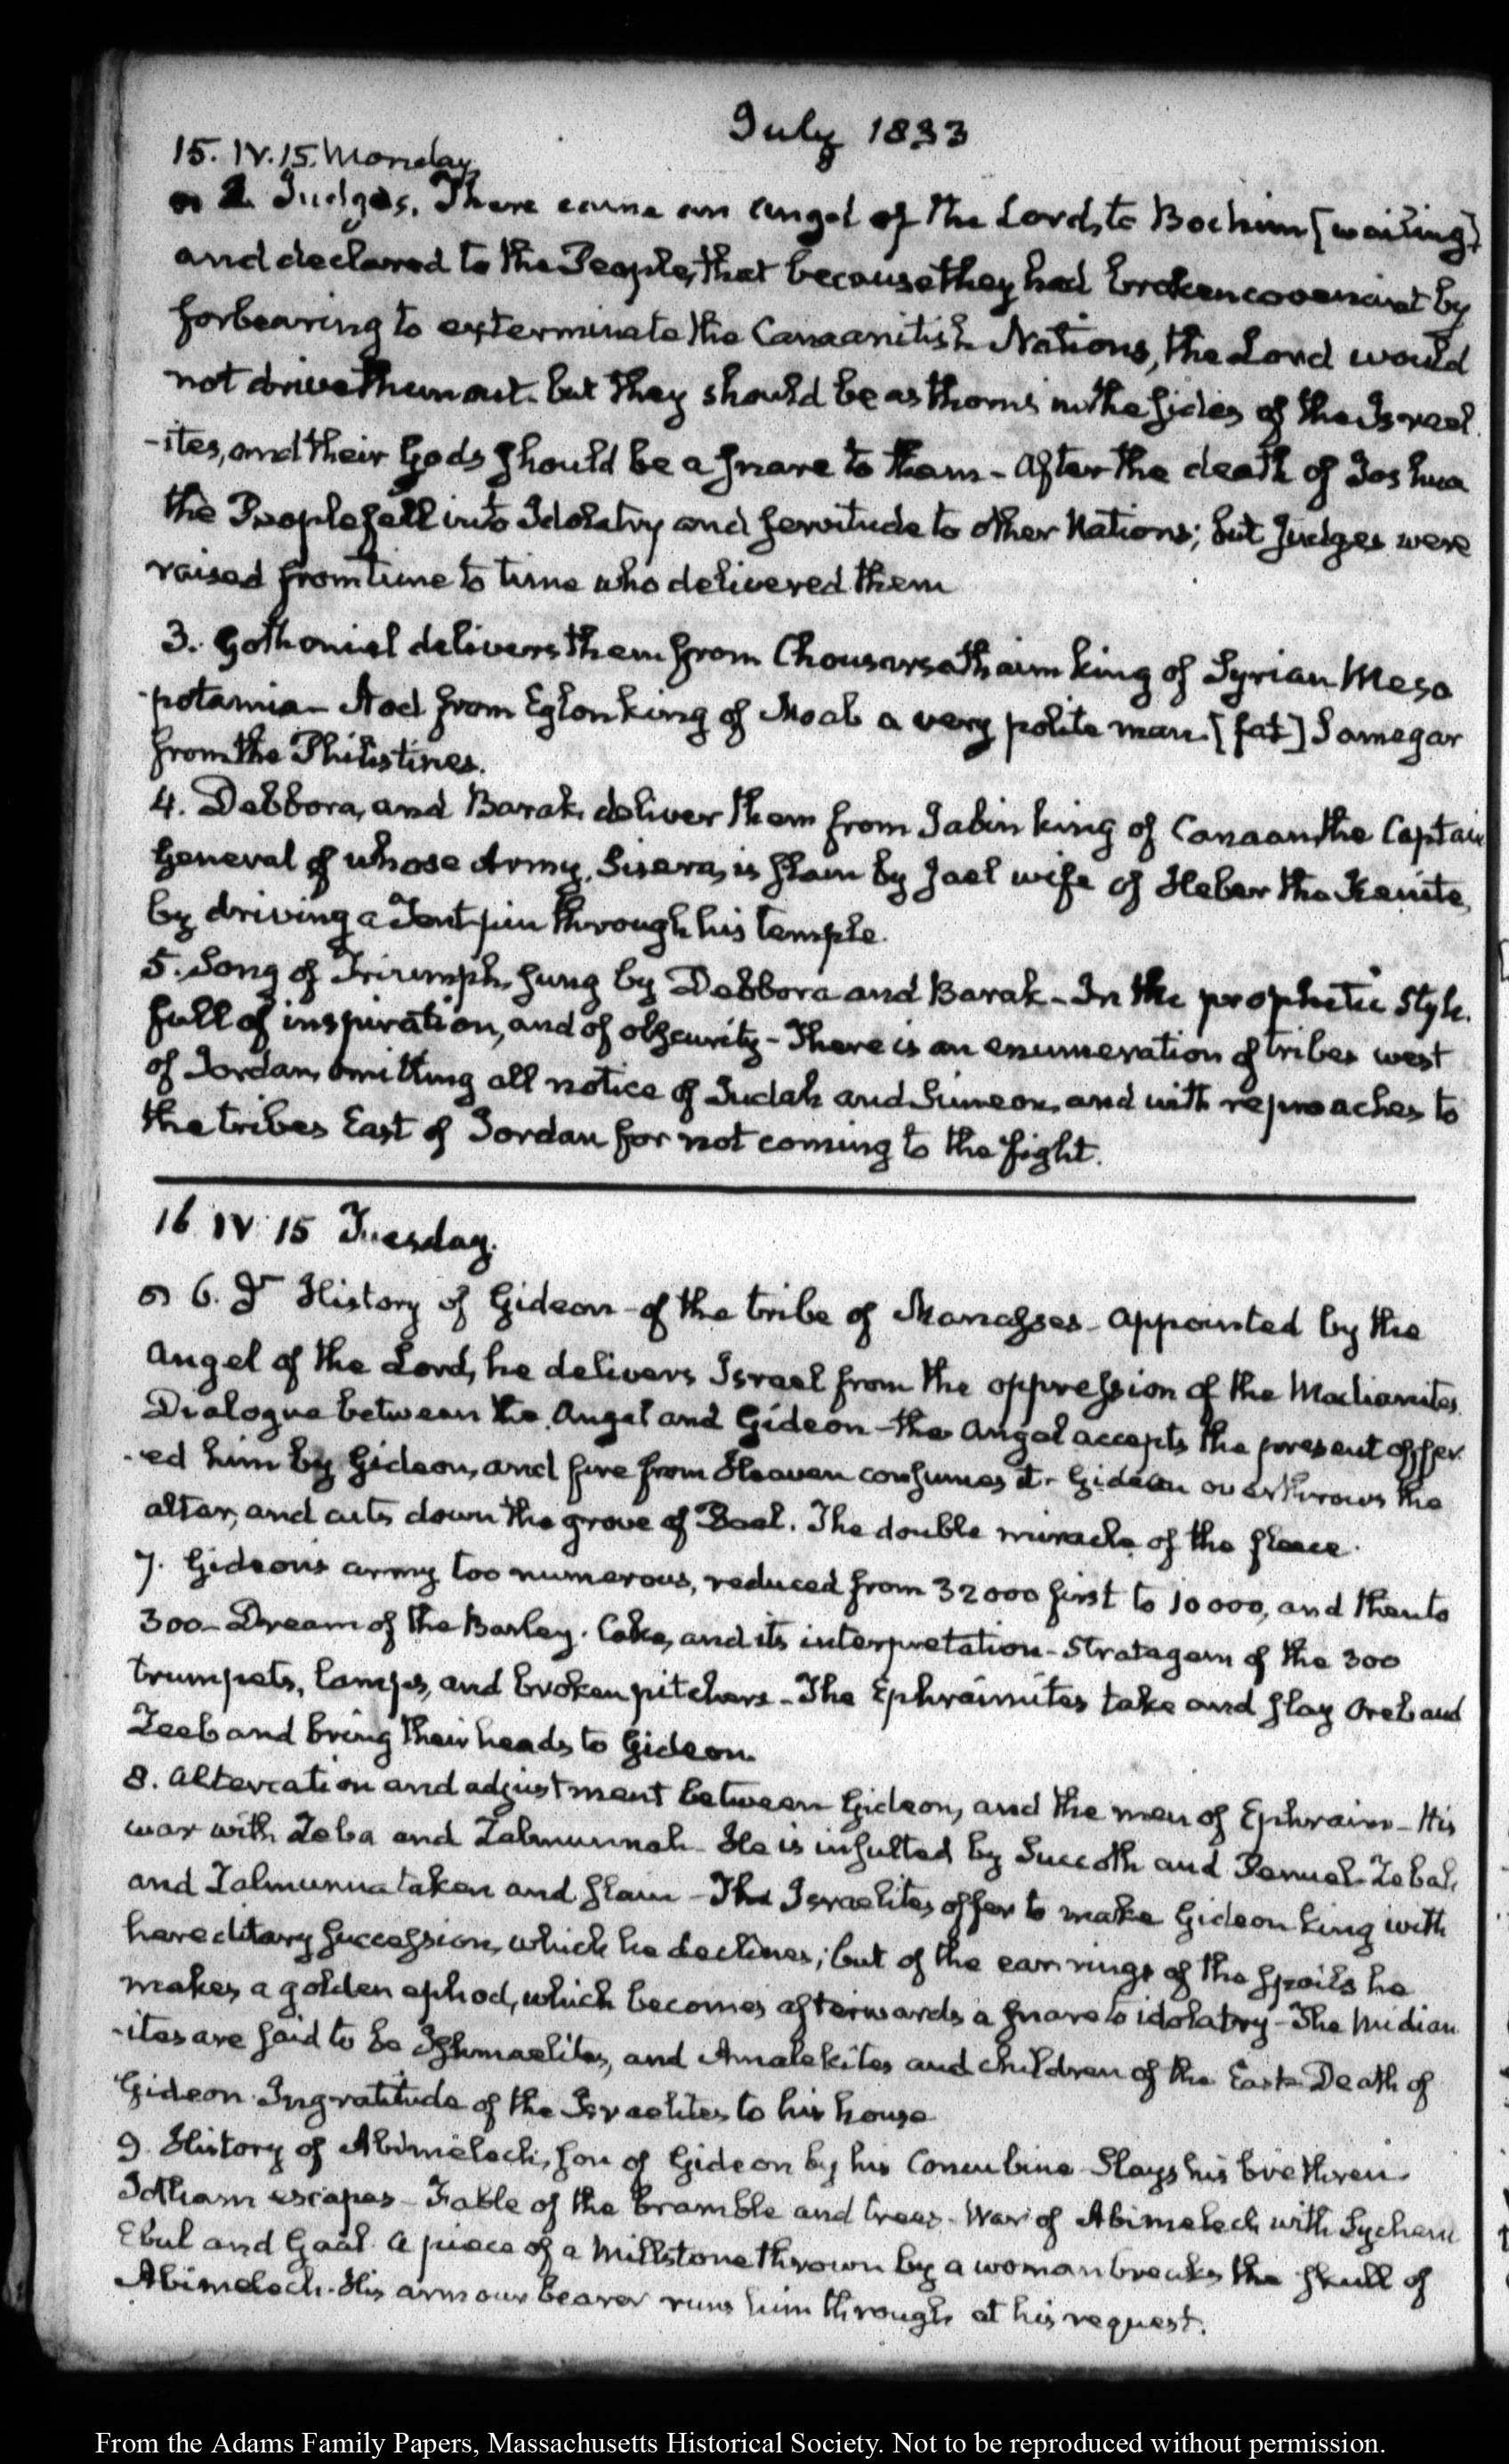 July 1833
15. IV. 15. Monday
2. Judges. There came an angel of the Lord, to Bochim [wailing]
and declared to the People, that because they had broken covenant by
forbearing to exterminate the Canaanitish Nations, the Lord would
not drive them out. but they should be as thorns in the sides of the Israel
-ites, and their Gods should be a snare to them - After the death of Joshua
the People fell into Idolatry and servitude to other Nations; but Judges were
raised from time to time who delivered them
3. Gothoniel delivers them from Chousarsathaim king of Syrian Meso
-potamia - Aod from Eglon king of Moab a very polite man. [fat] Samegar
from the Philistines.
4. Debbora, and Barak deliver them from Jabin king of Canaan, the Captain
General of whose Army, Sisera, is slain by Jael wife of Heber the Kenite,
by driving a Tent pin through his temple.
5. Song of Triumph, sung by Debbora and Barak - In the prophetic Style.
full of inspiration, and of obscurity - There is an enumeration of tribes west
of Jordan, omitting all notice of Judah and Simeon, and with reproaches to
the tribes East of Jordan for not coming to the fight.
16 IV 15 Tuesday.
6. J History of Gideon - of the tribe of Manasses - appointed by the
Angel of the Lord, he delivers Israel from the oppression of the Madianites
Dialogue between the Angel and Gideon - the Angel accepts the present offer
-ed him by Gideon, and fire from Heaven consumes it - Gideon overthrows the
altar, and cuts down the grove of Baal. The double miracle of the fleece.
7. Gideon's army too numerous, reduced from 32000 first to 10000, and then to
300 - Dream of the Barley. Cake, and its interpretation - Stratagem of the 300
trumpets, lamps, and broken pitchers - The Ephraimites take and slay Oreb and
Zeeb and bring their heads to Gideon.
8. Altercation and adjustment between Gideon, and the men of Ephraim - His
war with Zeba and Zalmunnah - He is insulted by Succoth and Penuel - Zebah
and Zalmunna taken and slain - The Israelites offer to make Gideon king with
hereditary succession, which he declines; but of the earrings of the spoils he
makes a golden ephod, which becomes afterwards a snare to idolatry - The Midian
-ites are said to be Ishmaelites, and Amalekites and children of the East - Death of
Gideon - Ingratitude of the Israelites to his house
9. History of Abimelech, son of Gideon by his Concubine - Slays his brethren.
Jotham escapes - Fable of the bramble and trees - War of Abimelech with Sychem
Ebul and Gaal. A piece of a Millstone thrown by a woman breaks the skull of
Abimelech. His armour bearer runs him through at his request.
From the Adams Family Papers, Massachusetts Historical Society. Not to be reproduced without permission.